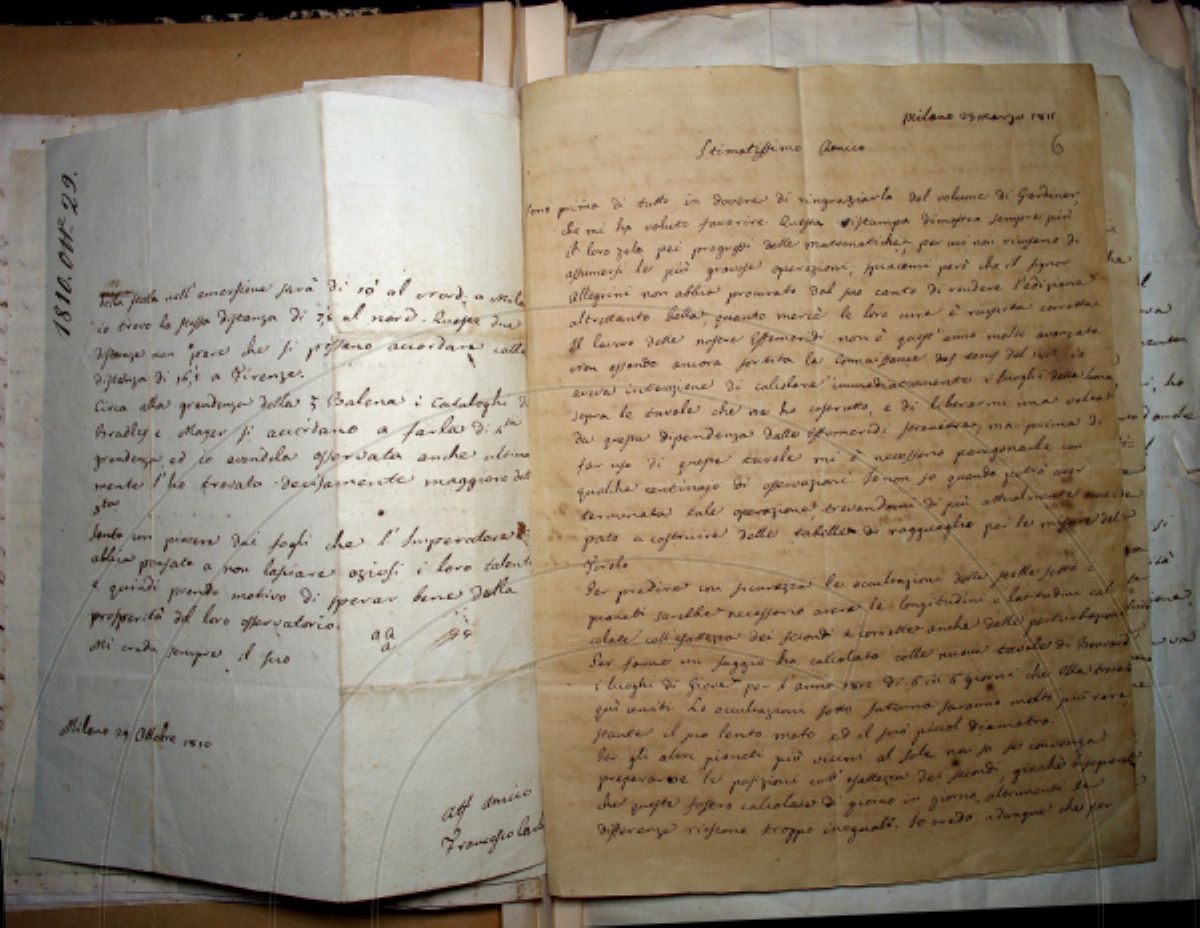 1810. Ott. 29.
stella nell'emersione sarà di 10' al nord, a Mila
io trovo la stessa distanza di 7,5 al nord. Queste due
distanze non pare che si possano accordare colla
distanza di 16,5 a Firenze.
Circa alla grandezza della ξ Balena i Cataloghi di
Bradley e Mayer si accordano a farla di 4ta
grandezza, ed io avendola osservata anche ultima
mente l'ho trovata decisamente maggiore del
5ta
Sento con piacere dai fogli che l'Imperatore
abbia pensato a non lasciare oziosi i loro talenti
e quindi prendo motivo di sperar bene della
prosperità del loro osservatorio.
Mi creda sempre il suo
Milano 29 Ottobre 1810
Aff Amico
Francesco Carl
Milano 23 marzo 1811
6
Stimatissimo Amico
Sono prima di tutto in dovere di ringraziarla del volume di Gardiner,
che mi ha voluto favorire. Questa ristampa dimostra sempre più
il loro zelo pei progressi delle matematiche, per cui non ricusano di
assumersi le più gravose operazioni, spiacemi però che il signor
Allegrini non abbia procurato dal suo canto di rendere l'edizione
altrettanto bella, quanto mercè le loro cure è riuscita corretta.
Il lavoro delle nostre Effemeridi non è quest'anno molto avanzato
non essendo ancora sortita la Connaissance des tems del 1812, io
aveva intenzione di calcolare immediatamente i luoghi della luna,
sopra le tavole che ne ho costrutto, e di liberarmi una volta
da questa dipendenza dalle Effemeridi straniere, ma prima di
far uso di queste tavole mi è necessario paragonarle con
qualche centinajo di osservazioni. Io non so quando potrò aver
terminata tale operazione trovandomi di più attualmente
pato a costruire delle tabelle di ragguaglio per le misure del
Tirolo
Per predire con sicurezza le occultazioni delle stelle sotto i
pianeti sarebbe necessario avere le longitudini e latitudini cal
colate coll'esattezza dei secondi e corrette anche dalle perturbazioni
Per farne un saggio ho calcolato colle nuove tavole di Bouvard
i luoghi di Giove per l'anno 1812 di 6 in 6 giorni che Ella troverà
qui uniti. Le occultazioni sotto Saturno saranno molto più rare,
stante il suo lento moto ed il suo piccol diametro.
Per gli altri pianeti più vicini al Sole non so se convenga
preparare le posizioni coll'esattezza dei secondi, giacchè bisognereb
che queste fossero calcolate di giorno in giorno, altrimenti le
differenze riescono troppo ineguali. Io credo adunque che per